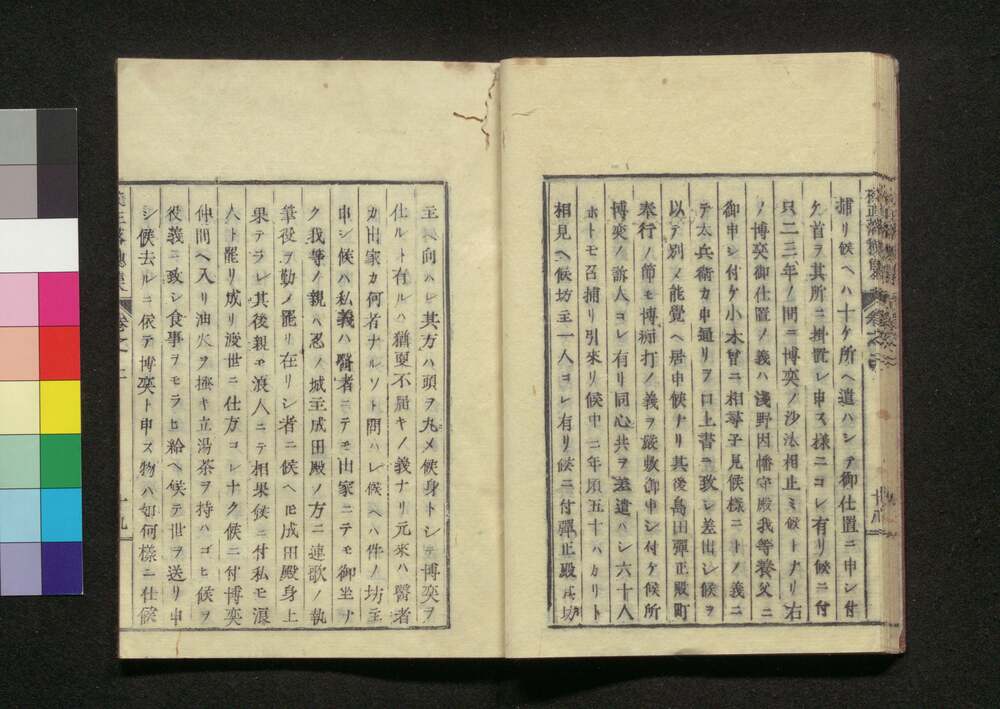 捕リ候ヘハ十ケ所ヘ遣ハシテ御仕置ニ申シ付
ケ首ヲ其所ニ掛置レ申ス樣ニコレ有リ候ニ付
只二三年ノ間ニ博奕ノ沙汰相止ミ候トナリ右
ノ博奕御仕置ノ義ハ淺野因幡守殿我等養父ニ
御申シ付ケ小木曾ニ相尋子見候樣ニトノ義ニ
テ太兵衛カ申通リヲ口上書ニ致シ差出シ候ヲ
以テ別メ能覺ヘ居申候ナリ其後島田彈正殿町
奉行ノ節モ博痴打ノ義ヲ嚴敷御申シ付ケ候所
博奕ノ訴人コレ有リ同心共ヲ差遣ハシ六十八
ホトモ召捕リ引來リ候中ニ年頃五十ハカリト
相見ヘ候坊主一人コレ有リ候ニ付彈正殿此坊
主ヘ向ハレ其方ハ頭ヲ丸メ候身トシテ博奕ヲ
仕ルト有ルハ猶更不届キノ義ナリ元來ハ醫者
カ出家カ何者ナルソト問ハレ候ヘハ件ノ坊主
申シ候ハ私義ハ醫者ニテモ出家ニテモ御坐ナ
ク我等ノ親ハ忍ノ城主成田殿ノ方ニ連歌ノ執
筆役ヲ勤メ罷リ在リシ者ニ候ヘ𪜈成田殿身上
果テラレ其後親モ浪人ニテ相果候ニ付私モ浪
人ト罷リ成リ渡世ニ仕方コレナク候ニ付博奕
仲間ヘ入リ油火ヲ搔キ立湯茶ヲ持ハコヒ候ヲ
役義ニ致シ食事ヲモラヒ給ヘ候テ世ヲ送リ申
シ候去ルニ依テ博奕ト申ス物ハ如何樣ニ仕候
卷之二